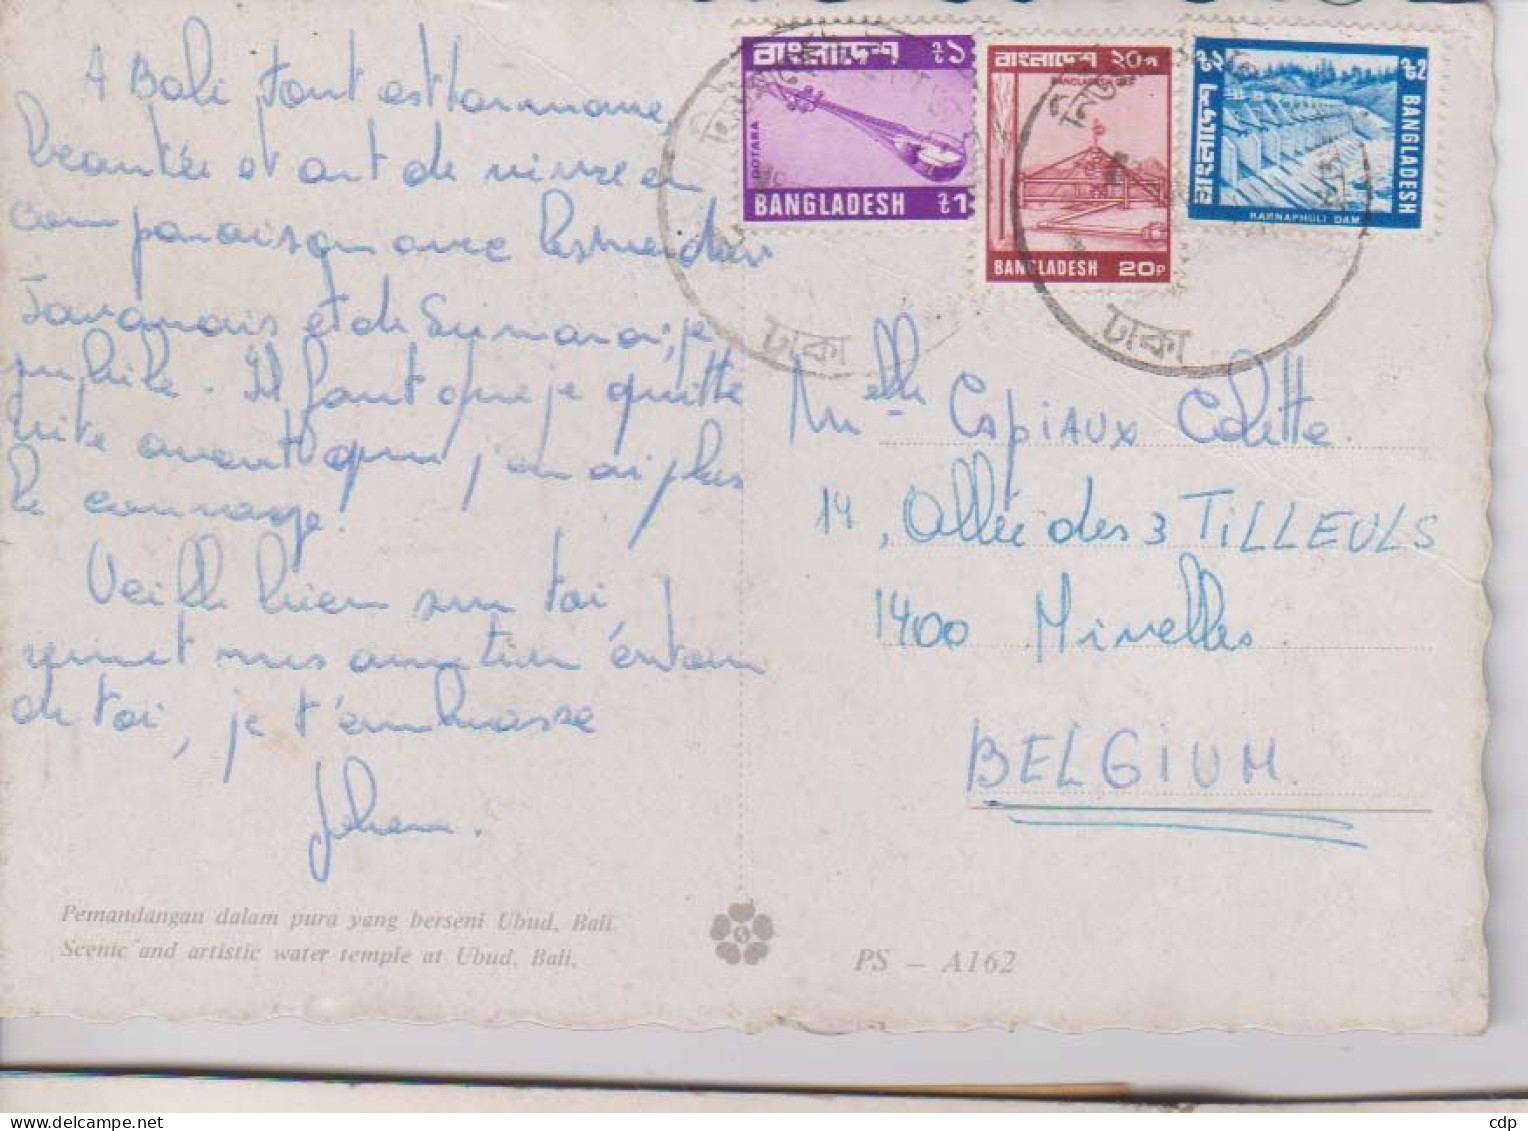 A Bali tout est harmonie,
beauté et art de vivre en
comparaison avec les
Javanais et de je
jubile. Il faut que je quitte
vite avant que j'en ai plus
le courage.
Veille bien sur toi,
remet mes amitiés
de toi, je t'embrasse
বাংলাদেশ ৳১
DOTARA
BANGLADESH ৳1
বাংলাদেশ ২০প
BANGLADESH 20P
৳২ বাংলাদেশ
৳2 BANGLADESH
KARNAPHULI DAM
ঢাকা
ঢাকা
Melle Capiaux Colette
14, Allée des 3 TILLEULS
1400 Nivelles
BELGIUM
Pemandangan dalam pura yang berseni Ubud, Bali
Scenic and artistic water temple at Ubud, Bali.
PS – A162
cdp